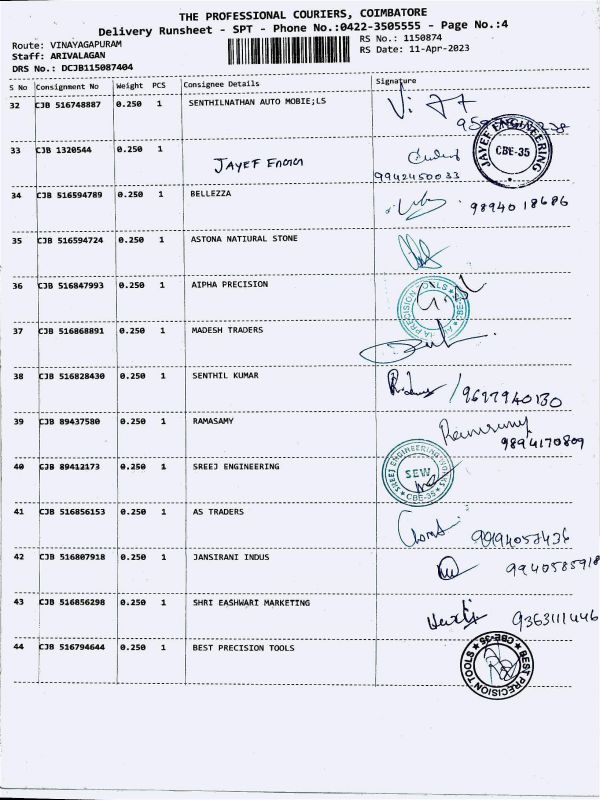 THE PROFESSIONAL COURIERS, COIMBATORE
Delivery Runsheet - SPT - Phone No.:0422-3505555 - Page No.:4
Route: VINAYAGAPURAM
RS No.: 1150874
Staff: ARIVALAGAN
RS Date: 11-Apr-2023
DRS No.: DCJB115087404
S No Consignment No Weight PCS Consignee Details Signature
32 CJB 516748887 0.250 1 SENTHILNATHAN AUTO MOBIE;LS
33 CJB 1320544 0.250 1 JAYEF Engg
JAYEF ENGINEERING CBE-35
9942450033
34 CJB 516594789 0.250 1 BELLEZZA
98940 18686
35 CJB 516594724 0.250 1 ASTONA NATIURAL STONE
36 CJB 516847993 0.250 1 AIPHA PRECISION
PRECISION TOOLS
37 CJB 516868891 0.250 1 MADESH TRADERS
38 CJB 516828430 0.250 1 SENTHIL KUMAR
9697940130
39 CJB 89437580 0.250 1 RAMASAMY
Ramasamy
9894170809
40 CJB 89412173 0.250 1 SREEJ ENGINEERING
SREEJ ENGINEERING WORKS SEW CBE-35
41 CJB 516856153 0.250 1 AS TRADERS
9994057436
42 CJB 516807918 0.250 1 JANSIRANI INDUS
9940585918
43 CJB 516856298 0.250 1 SHRI EASHWARI MARKETING
9363111446
44 CJB 516794644 0.250 1 BEST PRECISION TOOLS
BEST PRECISION TOOLS CBE-35